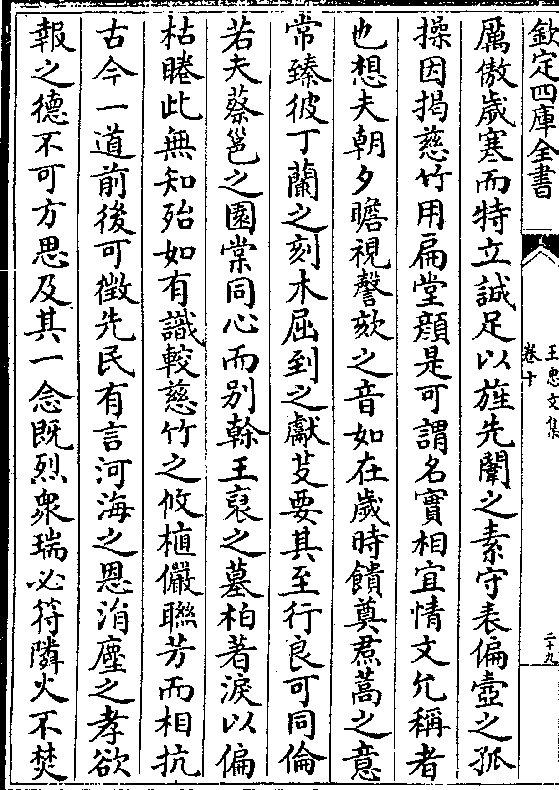 欽定四庫全書
王忠文集
卷十
二十九
厲傲歲寒而特立誠足以旌先闈之素守表偏壺之孤
操因揭慈竹用扁堂顔是可謂名實相宜情文允稱者
也想夫朝夕瞻視謦欬之音如在歲時饋奠焄蒿之意
常臻彼丁蘭之刻木屈到之獻芰要其至行良可同倫
若夫蔡邕之園棠同心而别榦王裒之墓柏著淚以偏
枯睠此無知殆如有識較慈竹之攸植儼聯芳而相抗
古今一道前後可徴先民有言河海之恩涓塵之孝欲
報之德不可方思及其一念既烈衆瑞必符隣火不焚